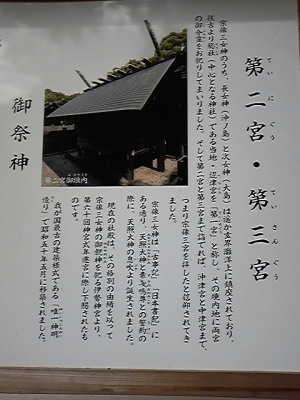 第二宮・第三宮
ていにぐう　ていさんぐう
宗像三女神のうち、長女神（沖ノ島）と次女神（大島）は遥か玄界灘洋上に鎮座されており、
往古より総社（中心となる神社）である当地・辺津宮を「第一宮」と称し、その境内地に両宮
の御分霊をお祀りしてまいりました。そして第二宮と第三宮まで詣でれば、沖津宮と中津宮まで、
つまり宗像三宮を拝したと信仰されてき
ました。
宗像三女神は「古事記」「日本書紀」に
ある通り、天照大神と素戔嗚尊との誓約の
際に、天照大神の息吹より誕生されました。
現在の社殿は、その格別の由緒を以って
宗像三女神の御親神を祀る伊勢神宮より、
第六十回神宮式年遷宮に際し下賜されたも
のです。
我が国最古の建築様式である「唯一神明
造り」で昭和五十年五月に移築されました。
第二宮御境内
御祭神